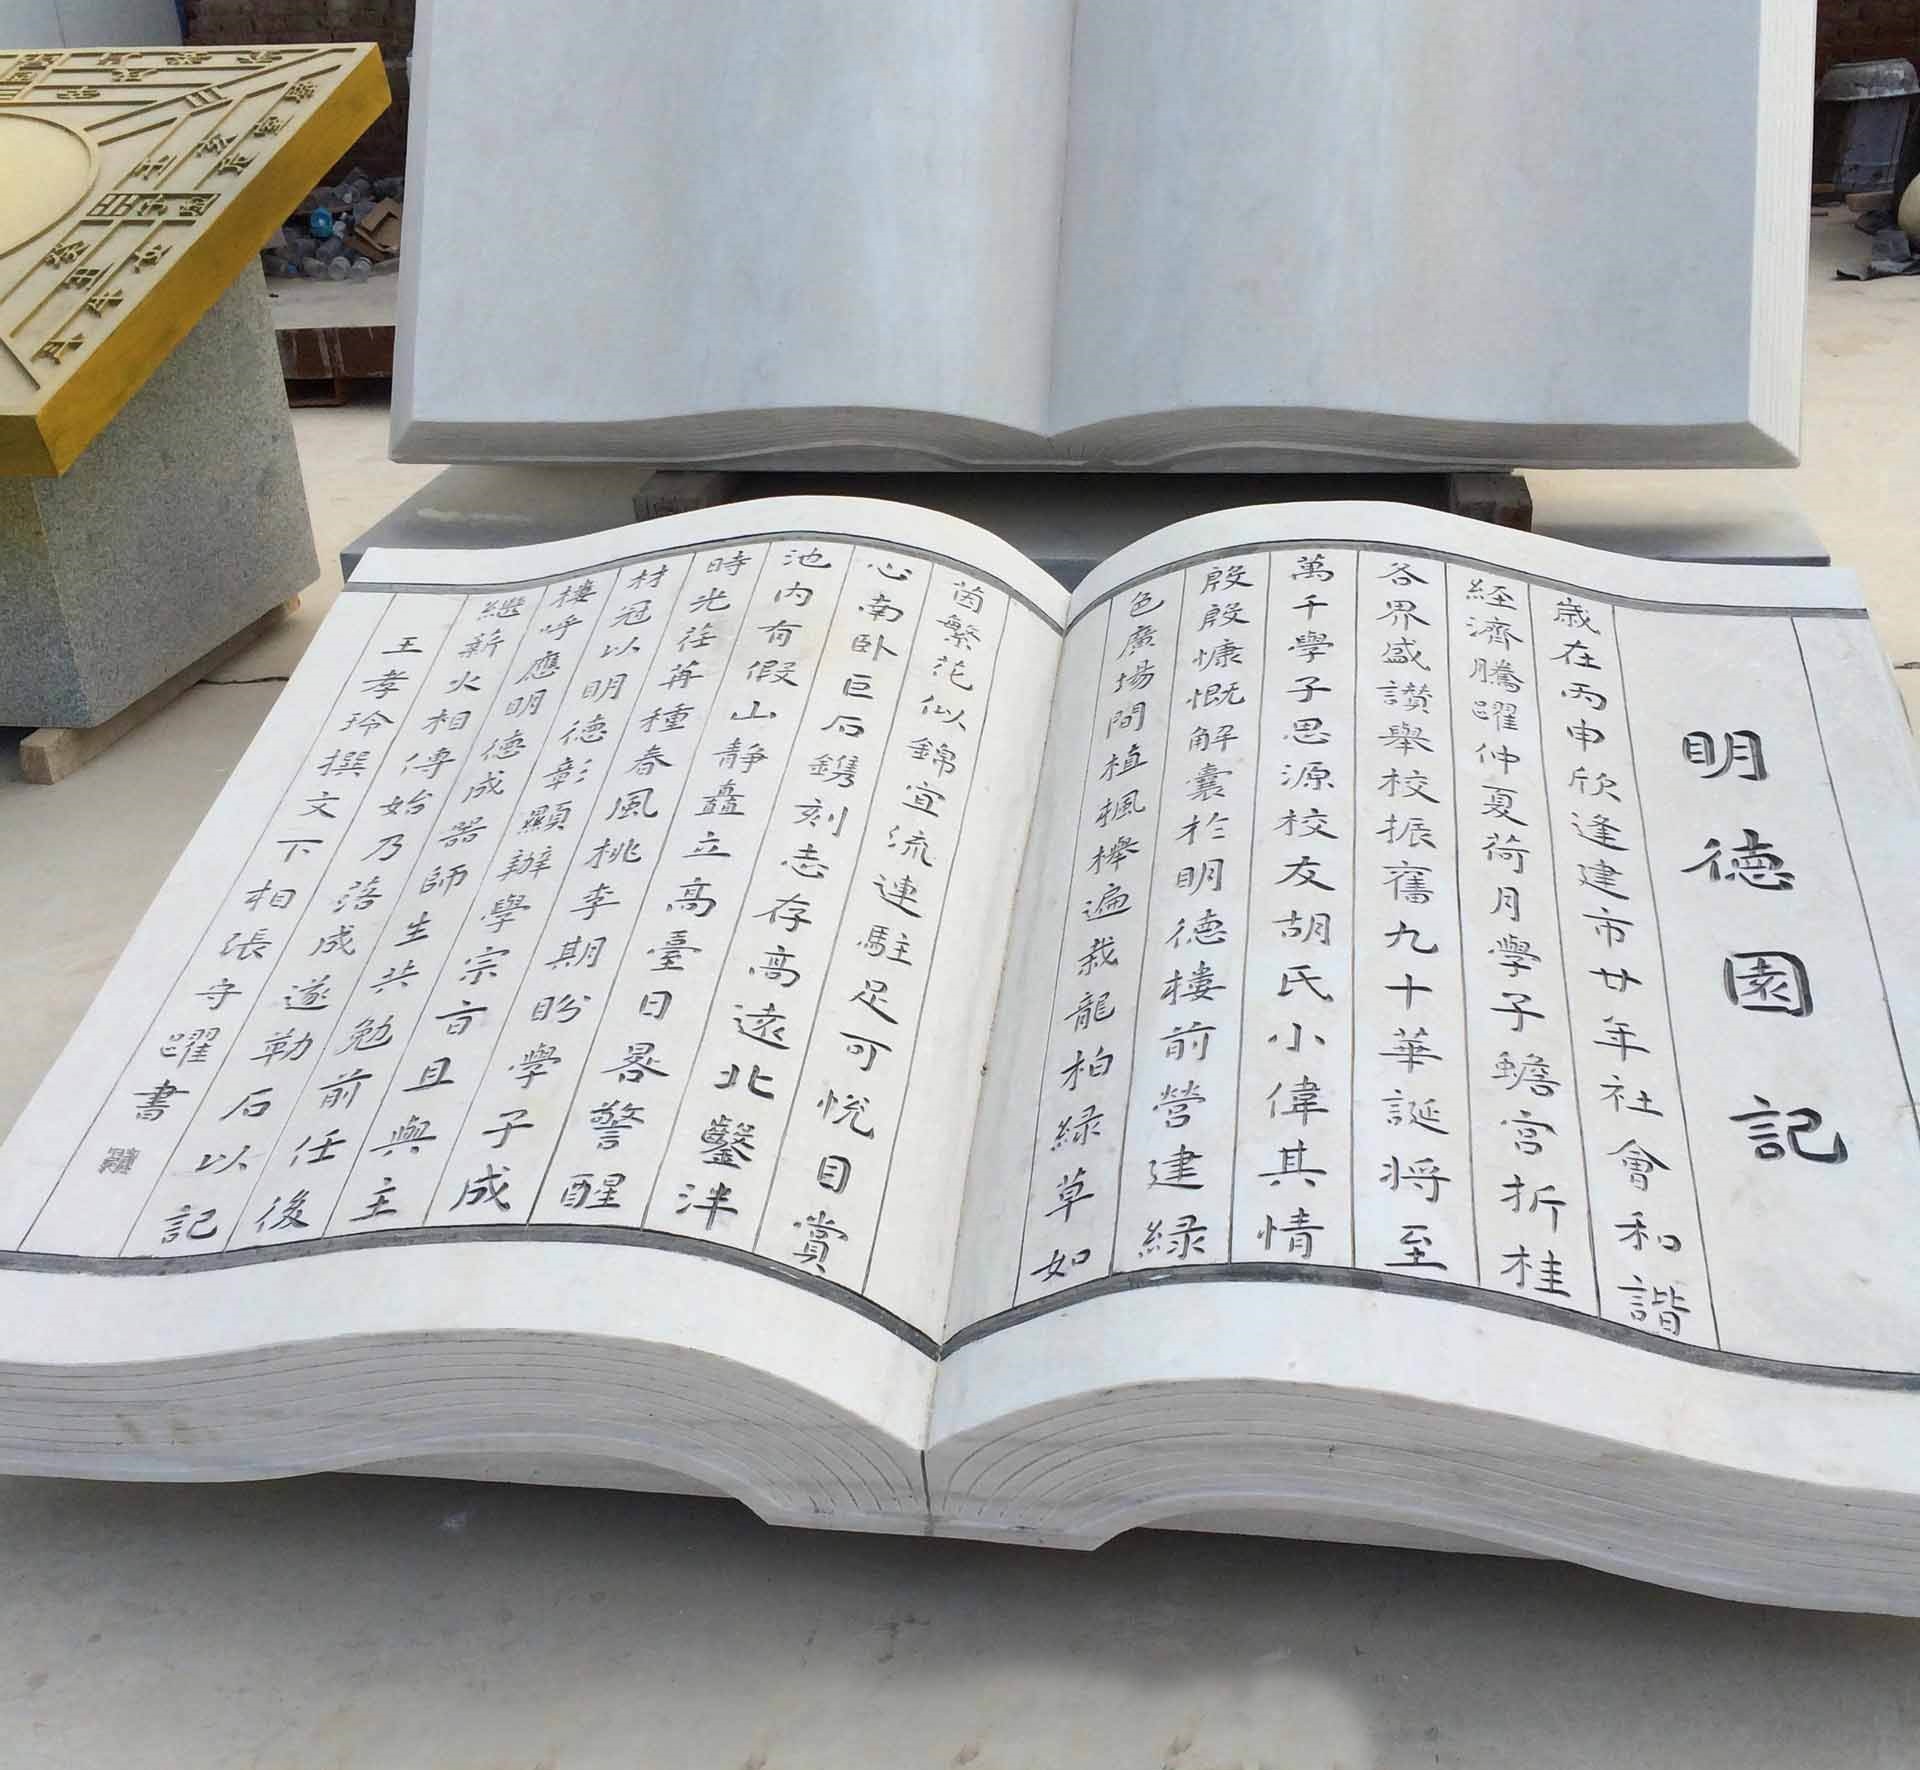 明德園記
歲在丙申欣逢建市廿年社會和諧
経濟騰躍仲夏荷月學子蟾宮折桂
各界盛讚舉校振奮九十華誕將至
萬千學子思源校友胡氏小偉其情
殷殷慷慨解囊於明德樓前營建緑
色廣場間植楓櫸遍栽龍柏緑草如
茵繁花似錦宜流連駐足可悅目賞
心南卧巨石鐫刻志存高遠北鑿泮
池内有假山靜矗立高臺日晷警醒
時光荏苒種春風桃李期盼學子成
材冠以明德彰顯辦學宗旨且與主
樓呼應明德成器師生共勉前任後
繼薪火相傳始乃落成遂勒石以記
王孝玲撰文下相張守躍書